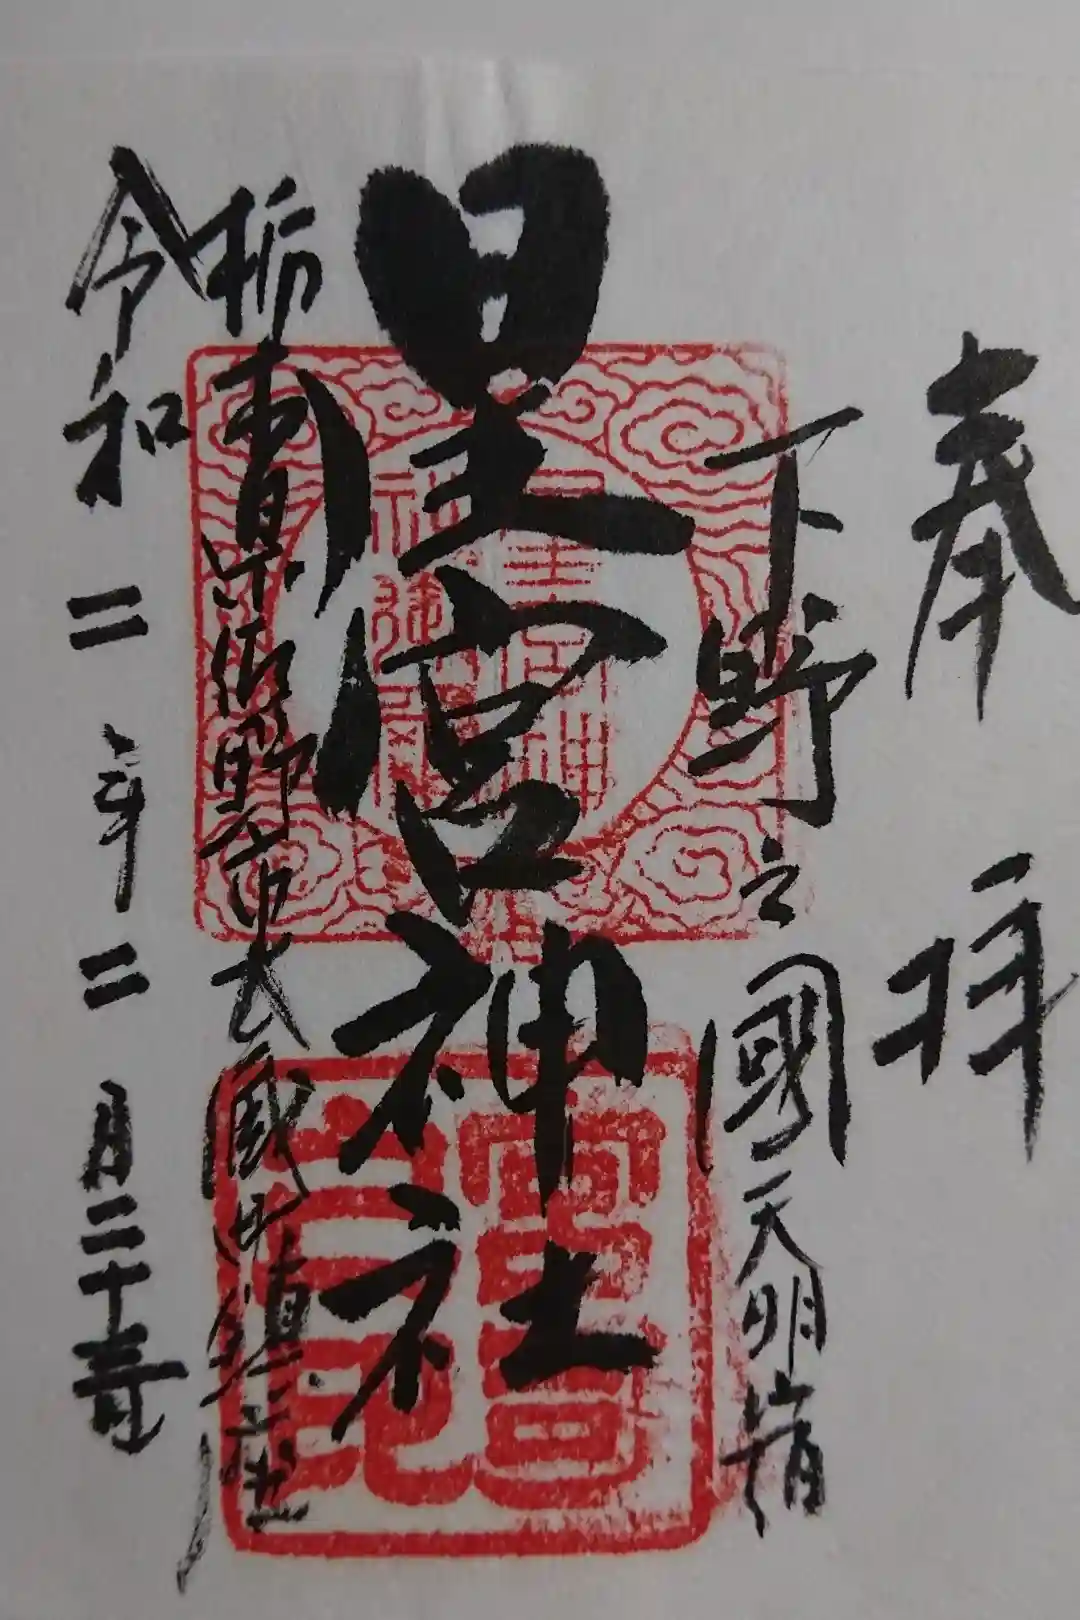 奉拝
下野之國天明宿
星宮神社
栃木県佐野市大蔵町鎮座
令和二年二月二十